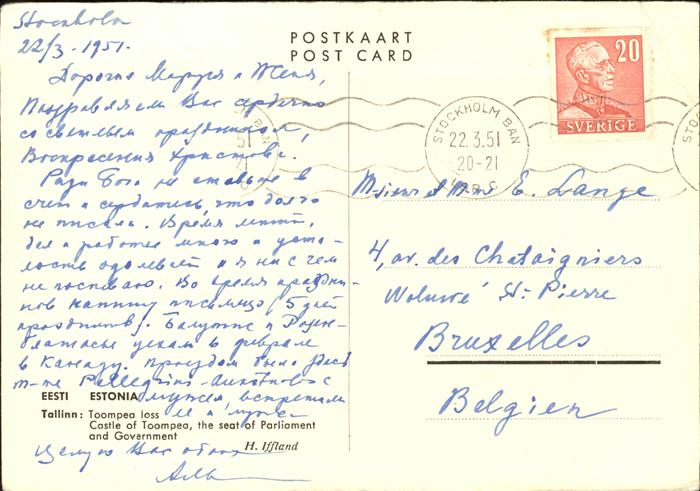 Stockholm
22/3 - 1951.
Дорогие Маруся и Женя,
Поздравляем Вас сердечно
со светлым праздником,
Воскресения Христова.
Ради Бога не ставьте в
счет и сердитесь, что долго
не писала. Время летит,
дел и работы много и уста-
лость одолевает и я ни с чем
не поспеваю. Во время праздни-
ков напишу письмецо (5 дней
праздников).
уехали в феврале
в Канаду. Проездом была здесь
m-me Pellegrini
с мужем, встречали
ее и
Целую Вас обоих
EESTI ESTONIA
Tallinn: Toompea loss
Castle of Toompea, the seat of Parliament
and Government
H. Iffland
POSTKAART
POST CARD
20
SVERIGE
STOCKHOLM BAN
22.3.51
20-21
Monsieur et Mme E. Lange
4, av. des Chataigniers
Woluwé St. Pierre
Bruxelles
Belgien